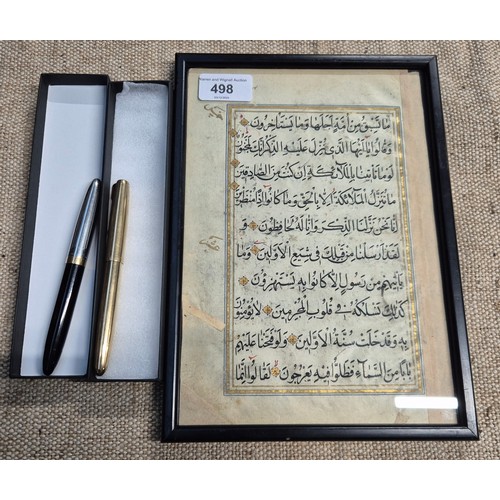 Warren and Wignall Auction
498
مَا تَسْبِقُ مِنْ أُمَّةٍ أَجَلَهَا وَمَا يَسْتَأْخِرُونَ
وَقَالُوا يَا أَيُّهَا الَّذِي نُزِّلَ عَلَيْهِ الذِّكْرُ إِنَّكَ لَمَجْنُونٌ
لَوْ مَا تَأْتِينَا بِالْمَلَائِكَةِ إِنْ كُنْتَ مِنَ الصَّادِقِينَ
مَا نُنَزِّلُ الْمَلَائِكَةَ إِلَّا بِالْحَقِّ وَمَا كَانُوا إِذًا مُنْظَرِينَ
إِنَّا نَحْنُ نَزَّلْنَا الذِّكْرَ وَإِنَّا لَهُ لَحَافِظُونَ وَ
لَقَدْ أَرْسَلْنَا مِنْ قَبْلِكَ فِي شِيَعِ الْأَوَّلِينَ وَمَا
يَأْتِيهِمْ مِنْ رَسُولٍ إِلَّا كَانُوا بِهِ يَسْتَهْزِئُونَ
كَذَلِكَ نَسْلُكُهُ فِي قُلُوبِ الْمُجْرِمِينَ لَا يُؤْمِنُونَ
بِهِ وَقَدْ خَلَتْ سُنَّةُ الْأَوَّلِينَ وَلَوْ فَتَحْنَا عَلَيْهِمْ
بَابًا مِنَ السَّمَاءِ فَظَلُّوا فِيهِ يَعْرُجُونَ لَقَالُوا إِنَّمَا